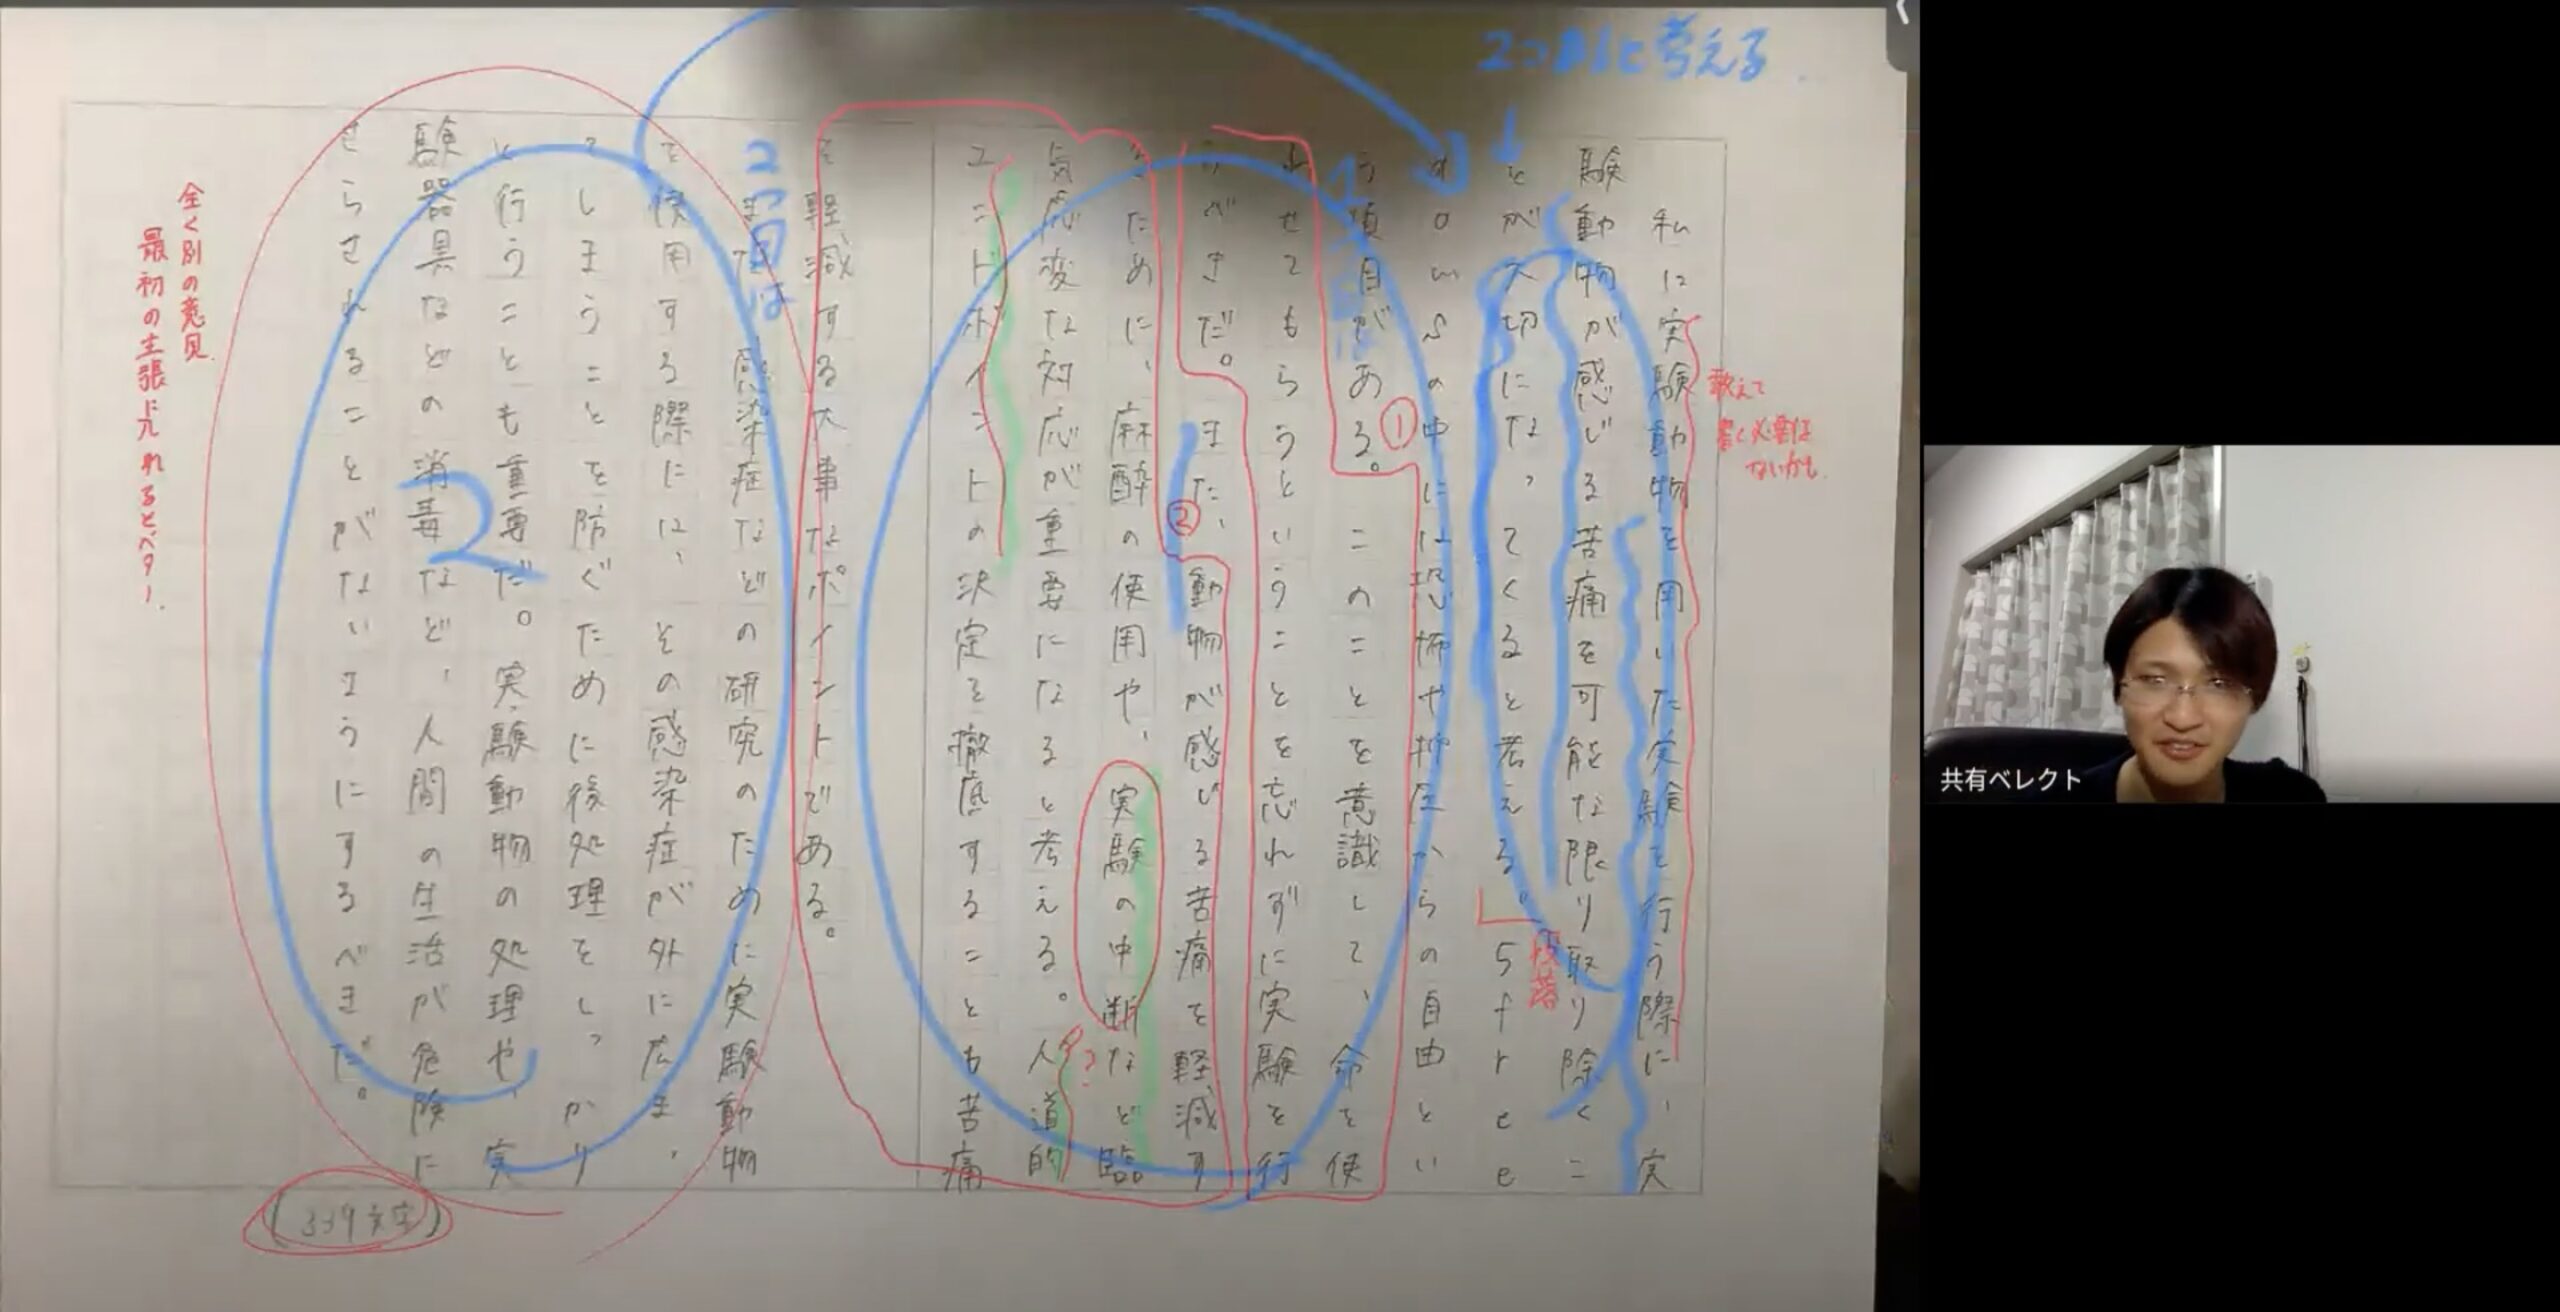 私は実験動物を用いた実験を行う際に、実
験動物が感じる苦痛を可能な限り取り除くこ
とが大切になってくると考える。5free
domsの中には恐怖や抑圧からの自由とい
う項目がある。このことを意識して、命を使
わせてもらうということを忘れずに実験を行
うべきだ。また、動物が感じる苦痛を軽減す
るために、麻酔の使用や、実験の中断など臨
気応変な対応が重要になると考える。人道的
エンドポイントの決定を徹底することも苦痛
を軽減する大事なポイントである。
また、感染症などの研究のために実験動物
を使用する際には、その感染症が外に広ま
てしまうことを防ぐために後処理をしっかり
と行うことも重要だ。実験動物の処理や、実
験器具などの消毒など、人間の生活が危険に
さらされることがないようにするべきだ。
(339文字)
2つあると考える
1つ目は
2つ目は
2
敢えて
書く必要は
ないかも
①
②
段落
?
全く別の意見
最初の主張に入れるとベター。
共有ベレクト